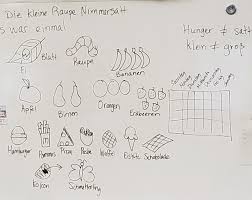 Die kleine Raupe Nimmersatt
s war einmal
Hunger ≠ satt
klein ≠ groß
Blatt
Ei
Raupe
Bananen
Apfel
Birnen
Orangen
Erdbeeren
Hamburger
Pommes
Pizza
Waffel
Eistüte
Schokolade
Kokon
Schmetterling